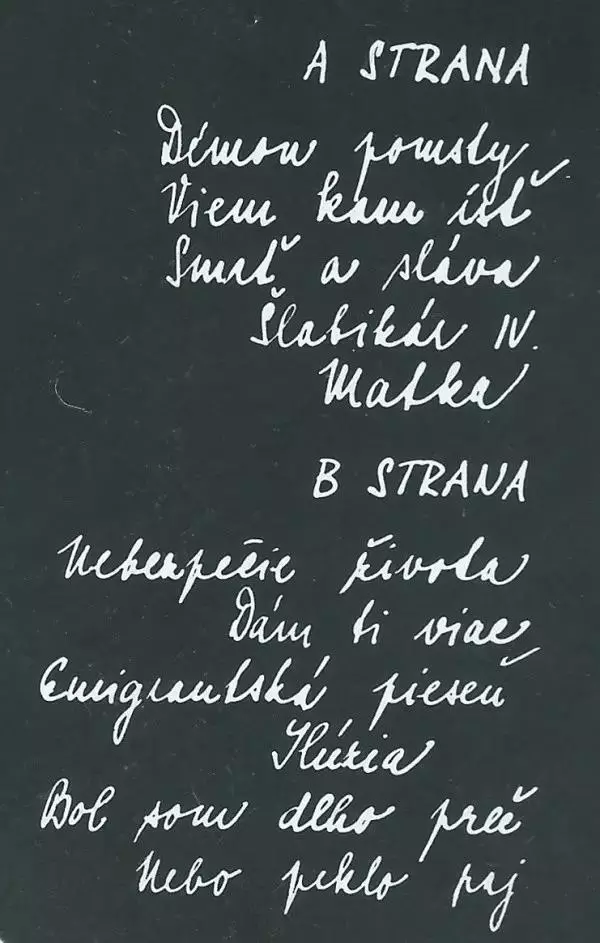 A STRANA
Démon pomsty
Viem kam ísť
Smrť a sláva
Šlabikár IV.
Matka
B STRANA
Nebezpečie života
Dám ti viac
Emigrantská pieseň
Ilúzia
Bol som dlho preč
Nebo peklo raj